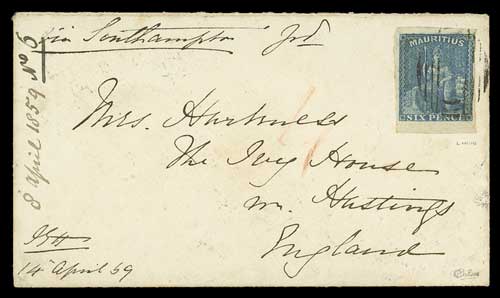 via Southampton
MAURITIUS
SIX PENCE
8 April 1859 No 6
Mrs. Harkness
The Ivy House
nr. Hastings
England
14 April 59